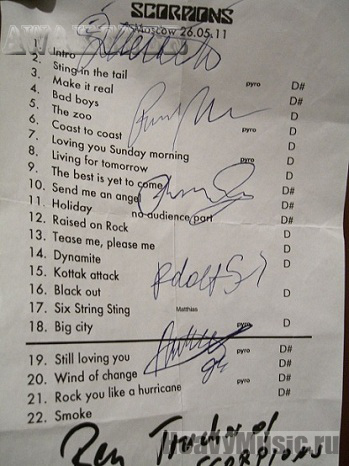 SCORPIONS
Moscow 26.05.11
Intro
2. Sting in the tail pyro D#
3. Make it real D#
4. Bad boys
5. The zoo D
6. Coast to coast pyro D
7. Loving you Sunday morning D
8. Living for tomorrow pyro D
9. The best is yet to come D#
10. Send me an angel D#
11. Holiday no audience part D#
12. Raised on Rock D
13. Tease me, please me
14. Dynamite D
15. Kottak attack
16. Black out D
17. Six String Sting Matthias
18. Big city pyro D
19. Still loving you pyro D#
20. Wind of change D#
21. Rock you like a hurricane pyro D#
22. Smoke D#
SCORPIONS
HeavyMusic.ru